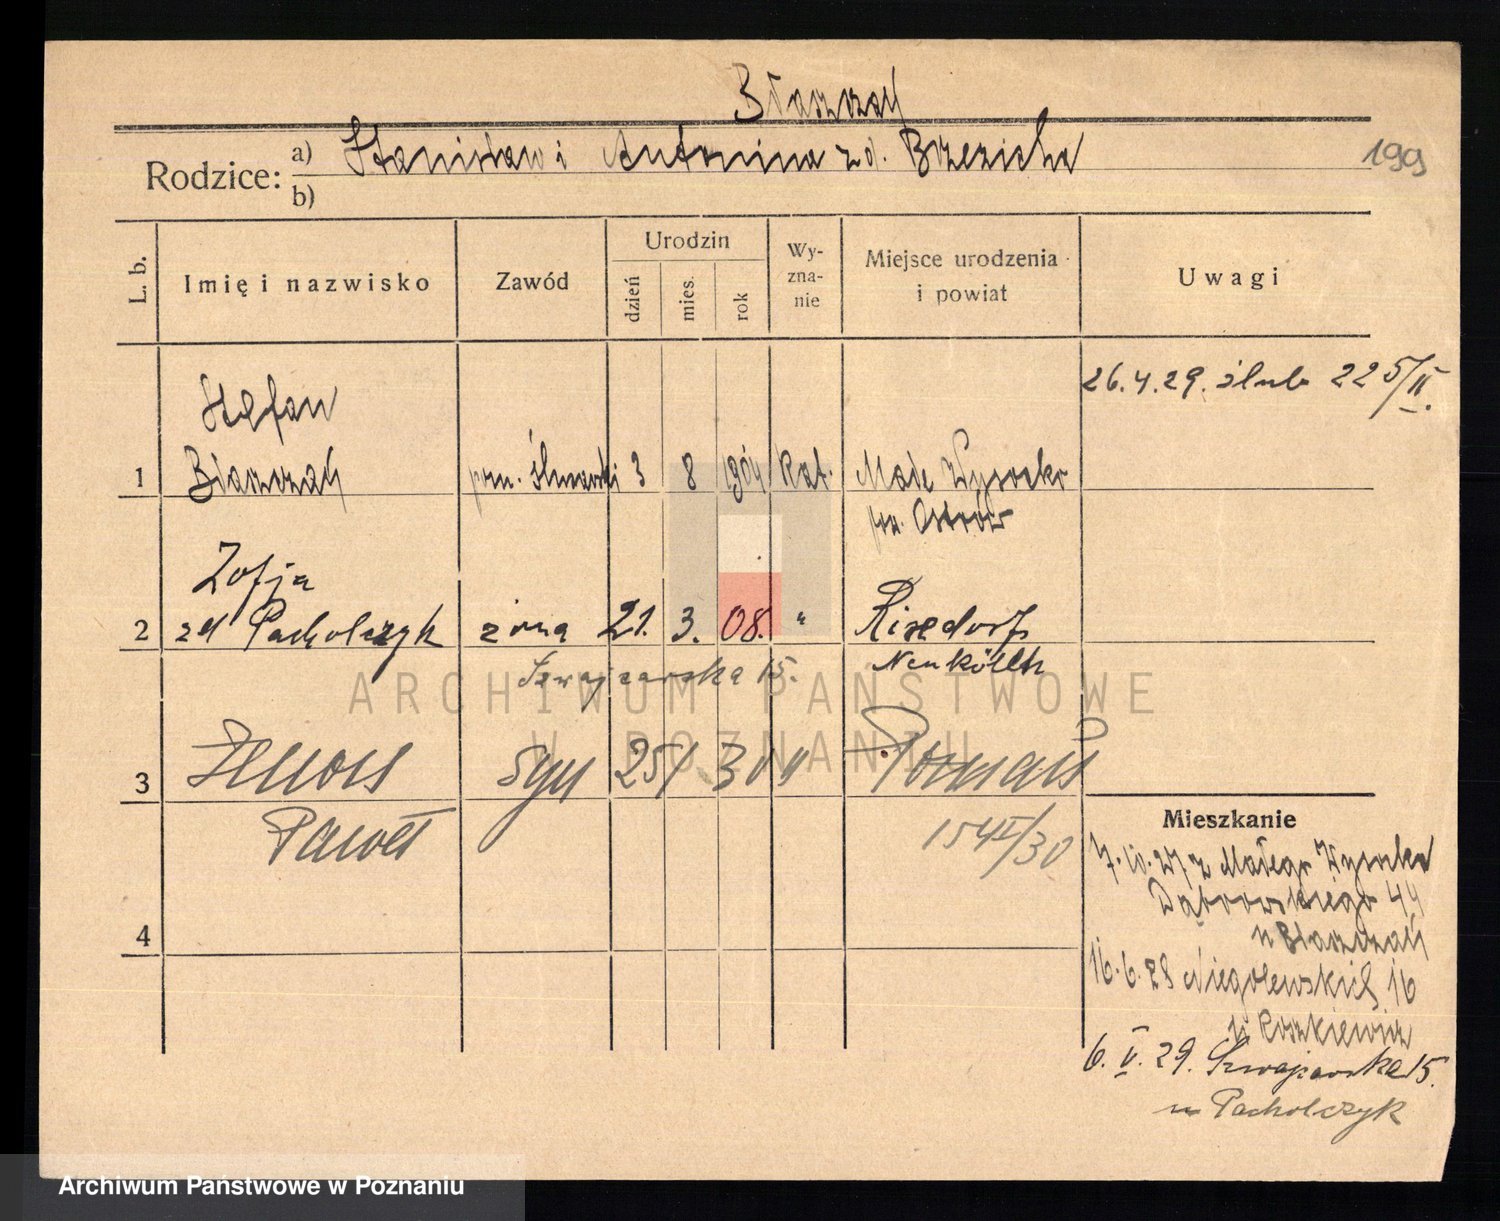 Błaszczak
Rodzice: a) Stanisław i Antonina z d. Brzezicha
199
b)
L. b.
Imię i nazwisko
Zawód
Urodzin
dzień
mies.
rok
Wy-
zna-
nie
Miejsce urodzenia
i powiat
Uwagi
26.4.29. ślub 225/II.
Stefan
1 Błaszczak 3 8 1904 kat. Małe Wysocko
pow. Ostrów
Zofja
2 zd Pacholczyk żona 21. 3. 08. " Rixdorf
Neukölln
Szwajcarska 15.
ARCHIWUM PAŃSTWOWE
W POZNANIU
3 Zenon syn 25/ 30 " Poznań
Paweł 1545/30
4
Mieszkanie
7.10.27 z Małego Wysocka
Dąbrowskiego 44
u Błaszczak
16.6.28 Niegolewskich 16
u Roszkiewicz
6.V.29. Szwajcarska 15.
u Pacholczyk
Archiwum Państwowe w Poznaniu